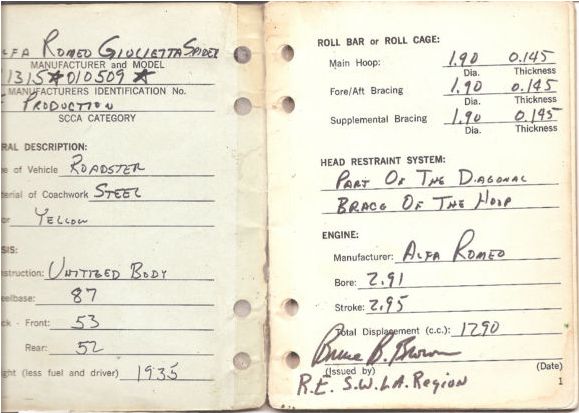 ALFA ROMEO GIULIETTA SPIDER
MANUFACTURER and MODEL
1315*010509*
MANUFACTURERS IDENTIFICATION No.
F PRODUCTION
SCCA CATEGORY
RAL DESCRIPTION:
e of Vehicle ROADSTER
terial of Coachwork STEEL
or YELLOW
SIS:
struction: UNITIZED BODY
eelbase: 87
ck - Front: 53
Rear: 52
ght (less fuel and driver) 1935
ROLL BAR or ROLL CAGE:
Main Hoop: 1.90 0.145
Dia. Thickness
Fore/Aft Bracing 1.90 0.145
Dia. Thickness
Supplemental Bracing 1.90 0.145
Dia. Thickness
HEAD RESTRAINT SYSTEM:
PART OF THE DIAGONAL
BRACE OF THE HOOP
ENGINE:
Manufacturer: ALFA ROMEO
Bore: 2.91
Stroke: 2.95
Total Displacement (c.c.): 1290
Bruce B. Brown
(Issued by) (Date)
R.E. S.W.LA. Region
1